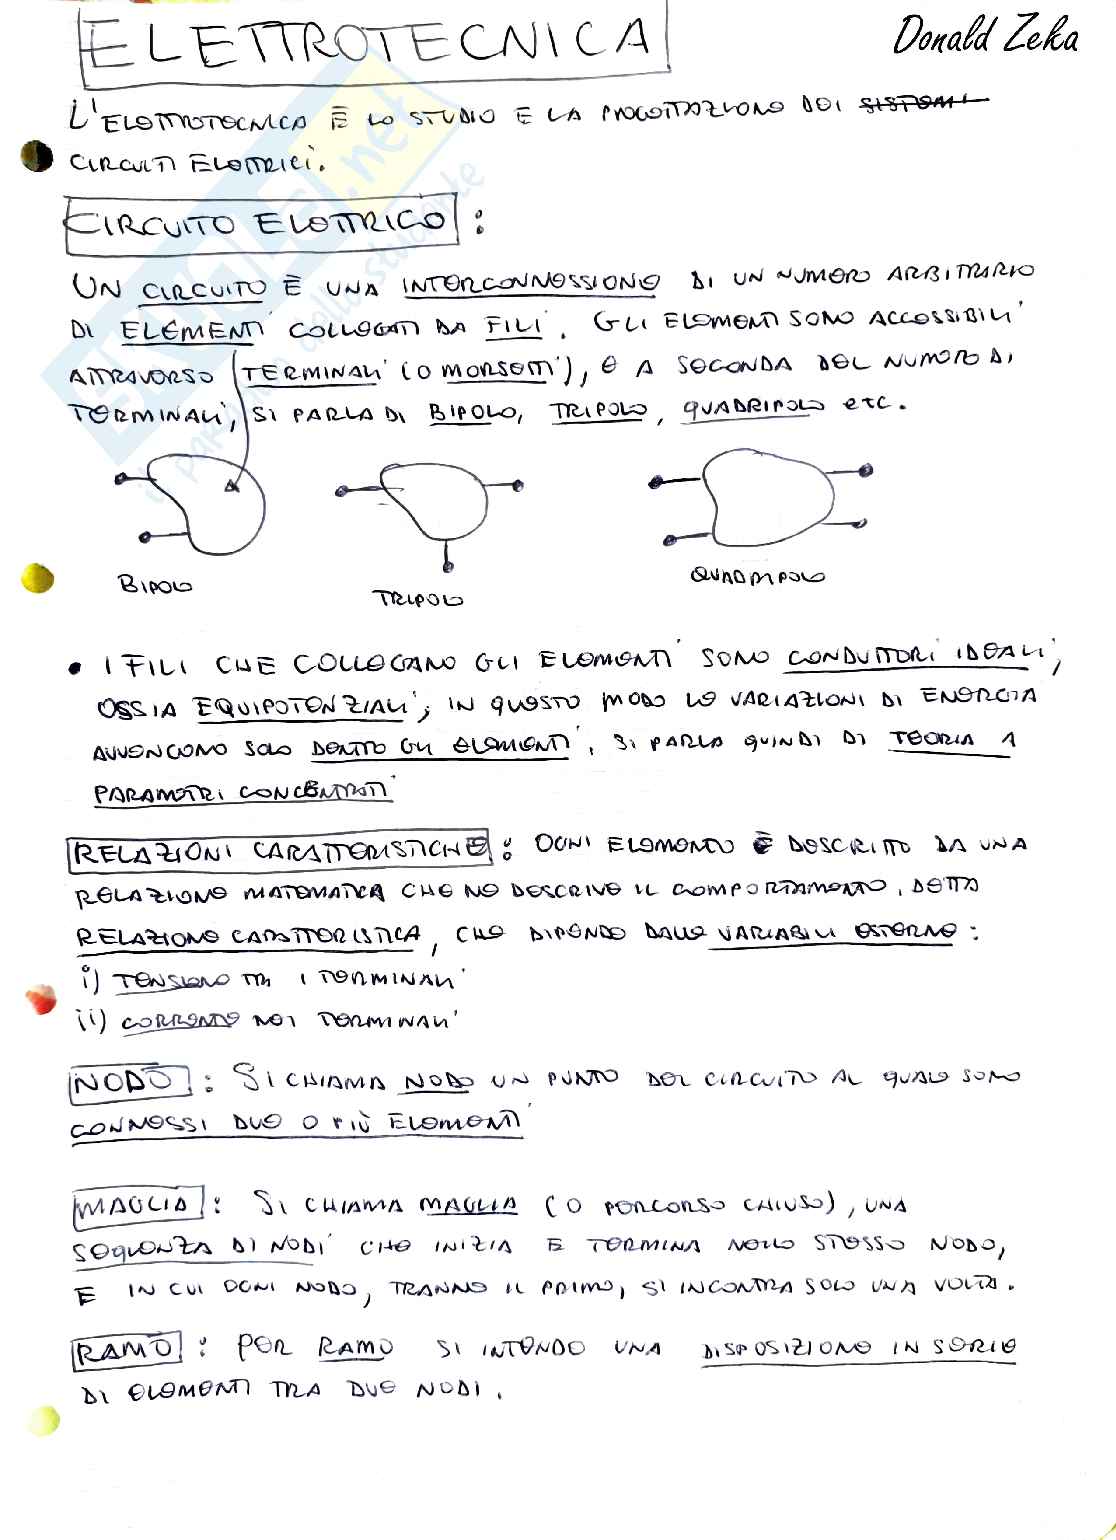 ELETTROTECNICA
Donald Zeka
L'ELETTROTECNICA È LO STUDIO E LA PROGETTAZIONE DEI SISTEMI
CIRCUITI ELETTRICI.
CIRCUITO ELETTRICO :
UN CIRCUITO È UNA INTERCONNESSIONE DI UN NUMERO ARBITRARIO
DI ELEMENTI COLLEGATI DA FILI. GLI ELEMENTI SONO ACCESSIBILI
ATTRAVERSO TERMINALI (O MORSETTI), E A SECONDA DEL NUMERO DI
TERMINALI, SI PARLA DI BIPOLO, TRIPOLO, QUADRIPOLO etc.
BIPOLO
TRIPOLO
QUADRIPOLO
• I FILI CHE COLLEGANO GLI ELEMENTI SONO CONDUTTORI IDEALI,
OSSIA EQUIPOTENZIALI; IN QUESTO MODO LE VARIAZIONI DI ENERGIA
AVVENGONO SOLO DENTRO GLI ELEMENTI, SI PARLA QUINDI DI TEORIA A
PARAMETRI CONCENTRATI
RELAZIONI CARATTERISTICHE : OGNI ELEMENTO È DESCRITTO DA UNA
RELAZIONE MATEMATICA CHE NE DESCRIVE IL COMPORTAMENTO, DETTA
RELAZIONE CARATTERISTICA, CHE DIPENDE DALLE VARIABILI ESTERNE :
i) TENSIONE TRA I TERMINALI
ii) CORRENTE NEI TERMINALI
NODO : SI CHIAMA NODO UN PUNTO DEL CIRCUITO AL QUALE SONO
CONNESSI DUE O PIÙ ELEMENTI
MAGLIA : SI CHIAMA MAGLIA (O PERCORSO CHIUSO), UNA
SEQUENZA DI NODI CHE INIZIA E TERMINA NELLO STESSO NODO,
E IN CUI OGNI NODO, TRANNE IL PRIMO, SI INCONTRA SOLO UNA VOLTA.
RAMO : PER RAMO SI INTENDE UNA DISPOSIZIONE IN SERIE
DI ELEMENTI TRA DUE NODI.